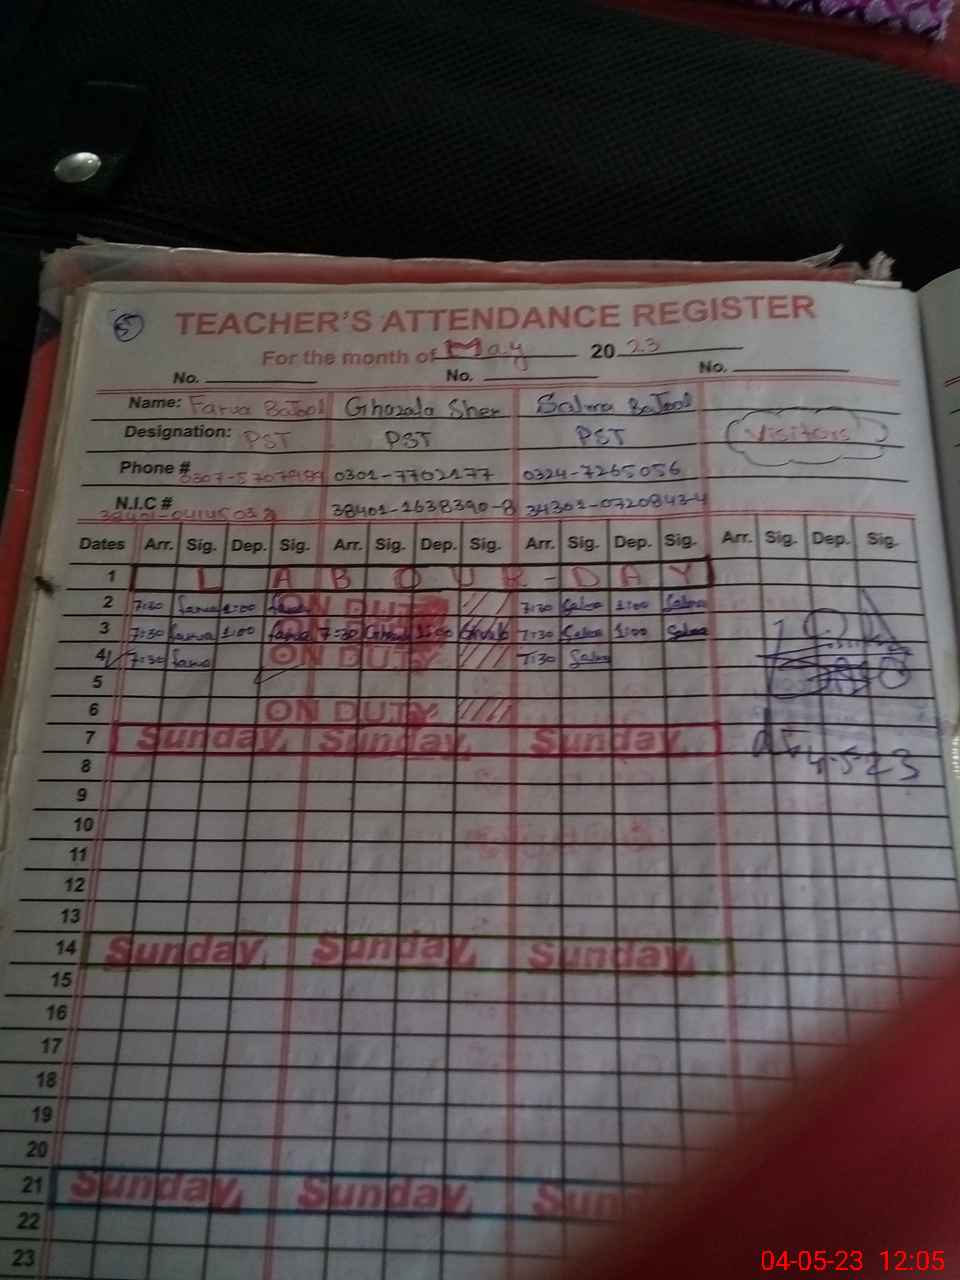 5
TEACHER'S ATTENDANCE REGISTER
For the month of May 2023
No. No. No.
Name: Farva Batool Ghazala Sher Salma Batool
Designation: PST PST PST Visitors
Phone # 0301-7702177 0324-7265056
N.I.C # 38401-1638390-8 34301-0720843-4
Dates Arr. Sig. Dep. Sig. Arr. Sig. Dep. Sig. Arr. Sig. Dep. Sig. Arr. Sig. Dep. Sig.
1 LABOUR-DAY
2 7:30 Farva 1:00 Farva ON DUTY 7:30 Salma 1:00 Salma
3 7:30 Farva 1:00 Farva 7:30 1:00 7:30 Salma 1:00 Salma
4 7:30 Farva ON DUTY 7:30 Salma
5
6 ON DUTY
7 Sunday Sunday Sunday
4-5-23
8
9
10
11
12
13
14 Sunday Sunday Sunday
15
16
17
18
19
20
21 Sunday Sunday Sun
22
23
04-05-23 12:05